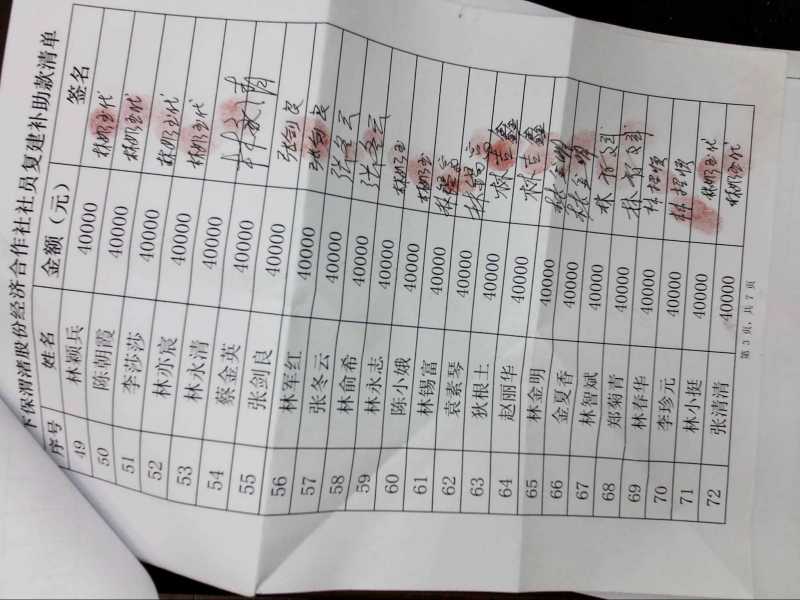 下保渭渚股份经济合作社社员复建补助款清单
序号 姓名 金额（元） 签名
49 林颖兵 40000 林娇玉代
50 陈朝霞 40000 林娇玉代
51 李莎莎 40000 林娇玉代
52 林亦宸 40000 林娇玉代
53 林永清 40000
54 蔡金英 40000
55 张剑良 40000 张剑良
56 林军红 40000 张剑良
57 张冬云 40000 张冬云
58 林俞希 40000 张冬云
59 林永志 40000 林娇玉
60 陈小娥 40000 林娇玉
61 林锡富 40000 林锡富
62 袁素琴 40000 林锡富
63 狄根土 40000 狄佳鑫
64 赵丽华 40000 狄佳鑫
65 林金明 40000 林金明
66 金夏香 40000 林金明
67 林智斌 40000 林智斌
68 郑菊青 40000 林智斌
69 林春华 40000
70 李珍元 40000
71 林小挺 40000 林娇玉代
72 张清清 40000 林娇玉代
第 3 页，共 7 页